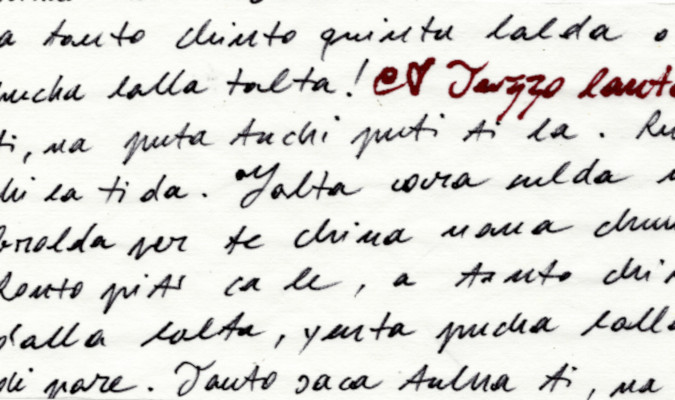 a tanto chinto quinta lalda o
pucha lalla talta! Terzzo lanta
ti, na puta tuchi puti ti la. Ru
chi ca ti da. Yalta covra nulda
brolda per te china nana chun
Ronto piti ca le, a tanto chi
dalla lolta, yenta pucha lalla
di pare. Tanto saca tulna ti, na